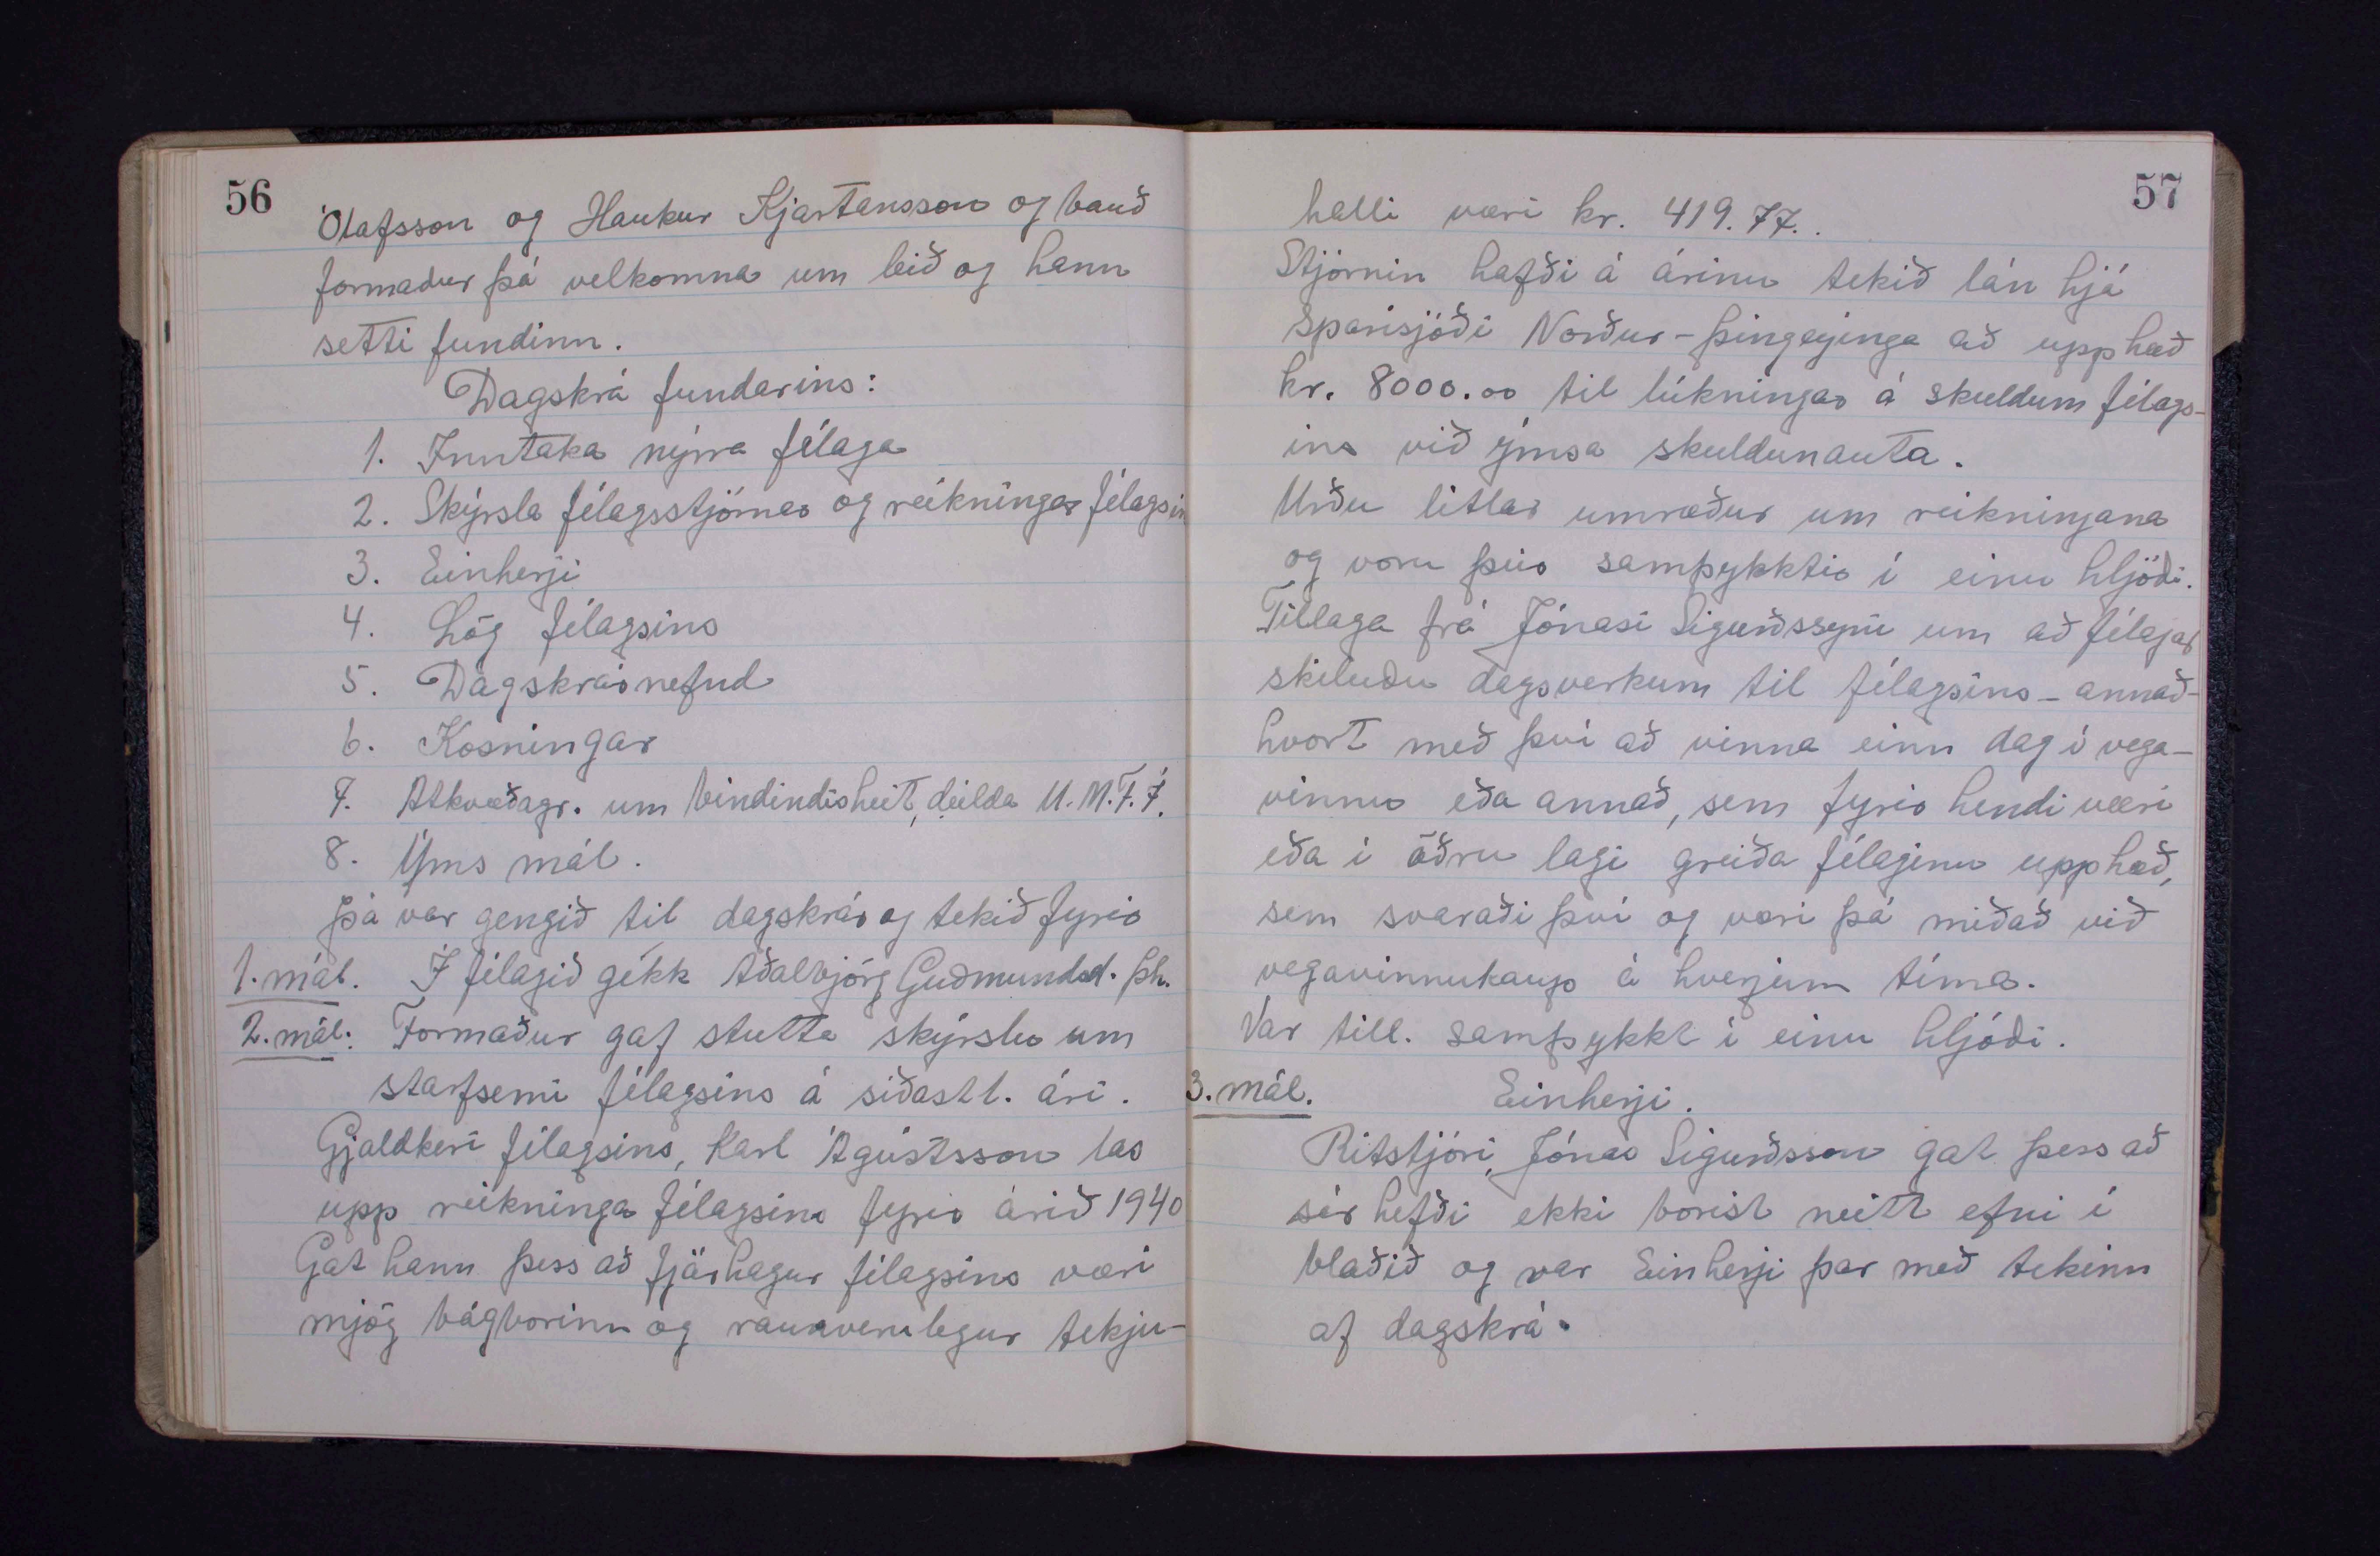 56
Ólafsson og Haukur Kjartansson og bauð
formaður þá velkomna um leið og hann
setti fundinn.
Dagskrá fundarins:
1. Inntaka nýrra félaga
2. Skýrsla félagsstjórnar og reikningar félagsin
3. Einherji
4. Lög félagsins
5. Dagskrárnefnd
6. Kosningar
7. Atkvæðagr. um bindindisheit, deilda U.M.F.Í.
8. Ýms mál.
Þá var gengið til dagskrár og tekið fyrir
1. mál. Í félagið gékk Aðalbjörg Guðmundsd. Þh.
2. mál. Formaður gaf stutta skýrslu um
starfsemi félagsins á síðastl. ári.
Gjaldkeri félagsins, Karl Ágústsson las
upp reikninga félagsins fyrir árið 1940
Gat hann þess að fjárhagur félagsins væri
mjög bágborinn og raunverulegur tekju-
57
halli væri kr. 419.77..
Stjórnin hafði á árinu tekið lán hjá
Sparisjóði Norður-Þingeyinga að upphæð
kr. 8000.00 til lúkningar á skuldum félags-
ins við ýmsa skuldunauta.
Urðu litlar umræður um reikningana
og voru þeir samþykktir í einu hljóði.
Tillaga frá Jónasi Sigurðssyni um að félagar
skiluðu dagsverkum til félagsins - annað-
hvort með því að vinna einn dag í vega-
vinnu eða annað, sem fyrir hendi væri
eða í öðru lagi greiða félaginu upphæð,
sem svaraði því og væri þá miðað við
vegavinnukaup á hverjum tíma.
Var till. samþykkt í einu hljóði.
3. mál. Einherji.
Ritstjóri, Jónas Sigurðsson gat þess að
sér hefði ekki borist neitt efni í
blaðið og var Einherji þar með tekinn
af dagskrá.